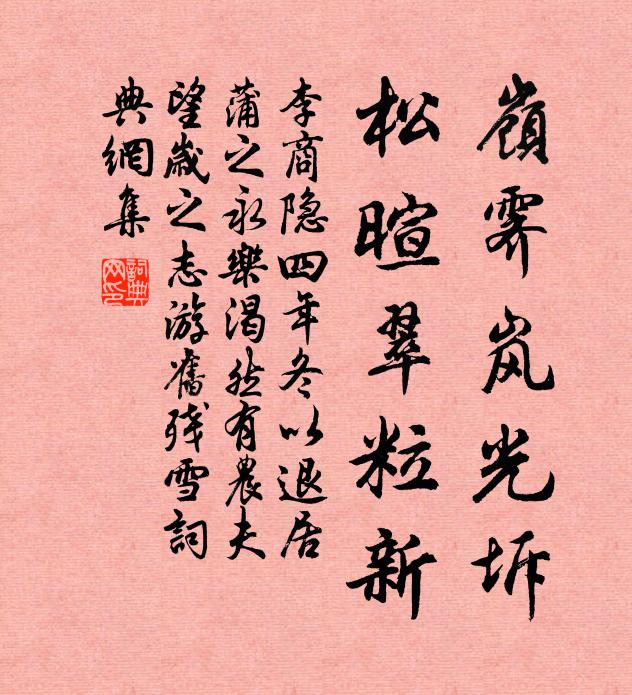 嶺霁岚光坼
松暄翠粒新
李商隐四年冬以退居
蒲之永樂渴然有農夫
望歲之志游舊残雪詞
典網集
詞典
网印